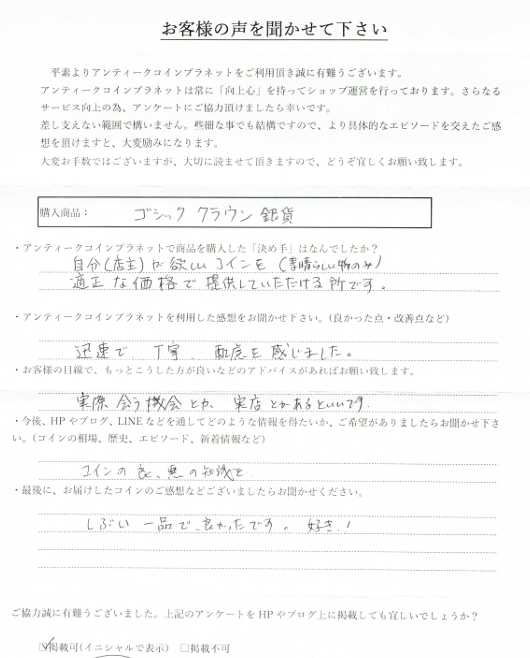 お客様の声を聞かせて下さい
平素よりアンティークコインプラネットをご利用頂き誠に有難うございます。
アンティークコインプラネットは常に「向上心」を持ってショップ運営を行っております。さらなる
サービス向上の為、アンケートにご協力頂けましたら幸いです。
差し支えない範囲で構いません。些細な事でも結構ですので、より具体的なエピソードを交えたご感
想を頂けますと、大変励みになります。
大変お手数ではございますが、大切に読ませて頂きますので、どうぞ宜しくお願い致します。
購入商品： ゴシック クラウン 銀貨
・アンティークコインプラネットで商品を購入した「決め手」はなんでしたか？
自分(店主)が欲しいコインを(素晴らしい物のみ)
適正な価格で提供していただける所です。
・アンティークコインプラネットを利用した感想をお聞かせ下さい。(良かった点・改善点など)
迅速で、丁寧、配慮を感じました。
・お客様の目線で、もっとこうした方が良いなどのアドバイスがあればお願い致します。
実際会う機会とか、実店とかあるといいです.
・今後、HPやブログ、LINEなどを通してどのような情報を得たいか、ご希望がありましたらお聞かせ下さ
い。(コインの相場、歴史、エピソード、新着情報など)
コインの良、悪の知識を
・最後に、お届けしたコインのご感想などございましたらお聞かせください。
しぶい一品で、良かったです。好き！
ご協力誠に有難うございました。上記のアンケートをHPやブログ上に掲載しても宜しいでしょうか？
☑掲載可(イニシャルで表示) □掲載不可